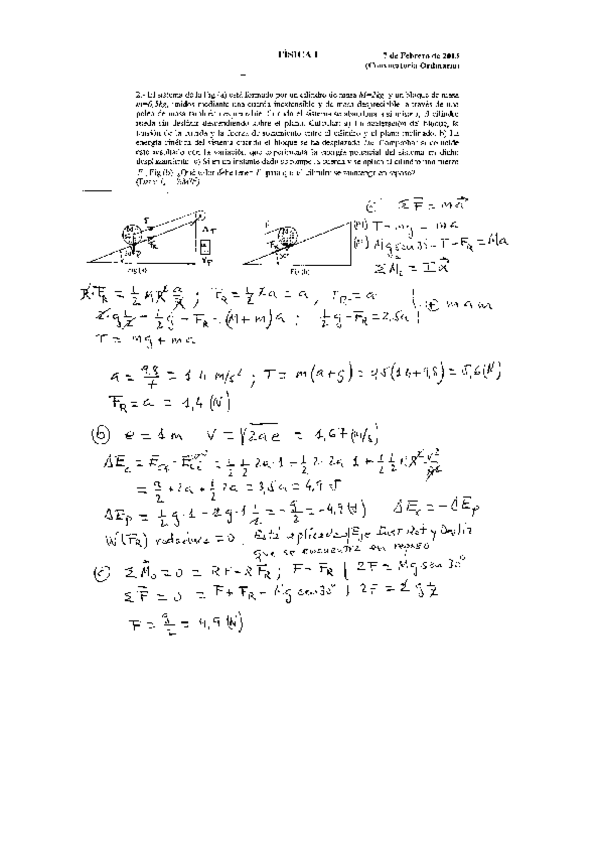 FÍSICA I
7 de Febrero de 2013
(Convocatoria Ordinaria)
2.- El sistema de la Fig.(a) está formado por un cilindro de masa M=2kg y un bloque de masa
m=0,5kg, unidos mediante una cuerda inextensible y de masa despreciable, a través de una
polea de masa también despreciable. Cuando el sistema se abandona a sí mismo, el cilindro
rueda sin deslizar descendiendo sobre el plano. Calcular: a) La aceleración del bloque, la
tensión de la cuerda y la fuerza de rozamiento entre el cilindro y el plano inclinado. b) La
energía cinética del sistema cuando el bloque se ha desplazado 1m. Comprobar si coincide
este resultado con la variación que experimenta la energía potencial del sistema en dicho
desplazamiento. c) Si en un instante dado se rompe la cuerda y se aplica al cilindro una fuerza
F, Fig.(b). ¿Qué valor debe tener F para que el cilindro se mantenga en reposo?
Fig.(a)
Fig.(b)
Σ F = m a
(m) T - mg = ma
(M) Mg sen 30 - T - F_R = Ma
Σ M_c = I α
R·F_R = 1/2 M R² a/R ; F_R = 1/2 2a = a , F_R = a
2·g 1/2 - 1/2 g - F_R = (M+m) a ; 1/2 g - F_R = 2,5a
T = mg + ma
a = 9,8/7 = 1,4 m/s² ; T = m(a+g) = 0,5(1,4+9,8) = 5,6 (N)
F_R = a = 1,4 (N)
(b) e = 1 m v = √2ae = 1,67 (m/s)
= a/2 + 2a + 1/2 2a = 3,5a = 4,9 J
ΔE_p = 1/2 g·1 - 2g·1 1/2 = - g/2 = -4,9 (J) ΔE_c = -ΔE_p
W(F_R) rodadura = 0.
que se encuentra en reposo
(c) Σ M_o = 0 = RF - R F_R ; F = F_R | 2F = Mg sen 30°
Σ F = 0 = F + F_R - Mg sen 30° | 2F = 2 g 1/2
F = g/2 = 4,9 (N)